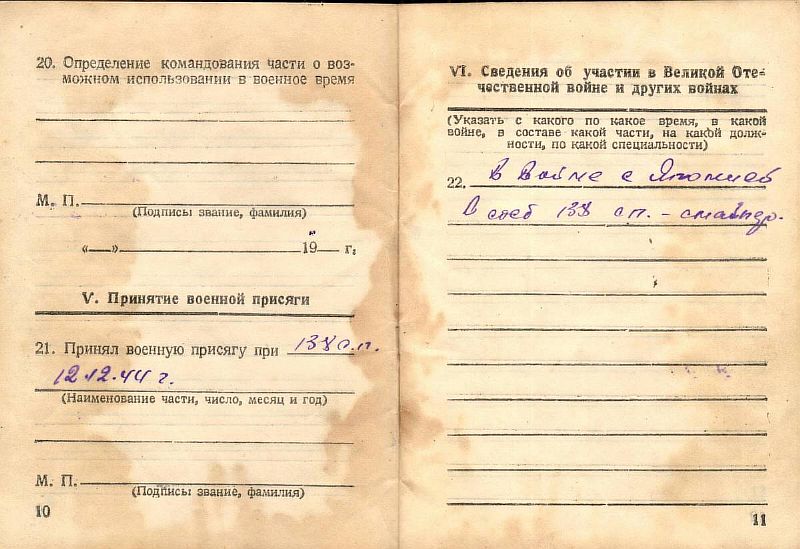 20. Определение командования части о воз-
можном использовании в военное время
М. П.
(Подписы звание, фамилия)
«—» 19— г.
V. Принятие военной присяги
21. Принял военную присягу при 138 с.п.
12.12.44 г.
(Наименование части, число, месяц и год)
М. П.
(Подписы звание, фамилия)
10
VI. Сведения об участии в Великой Оте-
чественной войне и других войнах
(Указать с какого по какое время, в какой
войне, в составе какой части, на какой долж-
ности, по какой специальности)
22. В войне с Японией
В 138 сп. -
11